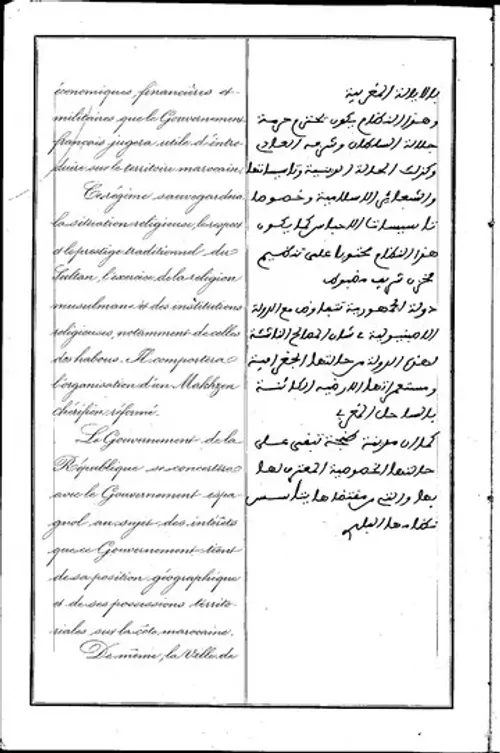 économiques, financières et
militaires que le Gouvernement
français jugera utile d'intro-
duire sur le territoire marocain.
Ce régime sauvegardera
la situation religieuse, le respect
et le prestige traditionnel du
Sultan, l'exercice de la religion
musulmane et des institutions
religieuses, notamment de celles
des habous. Il comportera
l'organisation d'un Makhzen
chérifien réformé.
Le Gouvernement de la
République se concertera
avec le Gouvernement espa-
gnol au sujet des intérêts
que ce Gouvernement tient
de sa position géographique
et de ses possessions territo-
riales sur la côte marocaine.
De même, la Ville de
بالايالة المغربية
وهذا النظام يكون يحترم حرمة
جلالة السلطان وشرفه العادي
وكذلك الحالة الدينية وتاسيساتها
والشعائر الاسلامية وخصوصا
تاسيسات الاحباس كما يكون
هذا النظام محتويا على تنظيم
مخزن شريف مضبوط
دولة الجمهورية تتفاوض مع الدولة
الاصبنيولية في شان المصالح الناشئة
لهذه الدولة من حالتها الجغرافية
ومستعمراتها الارضية الكائنة
بالساحل المغربي
كما ان مدينة طنجة تبقى على
حالتها الخصوصية المعترف لها
بها والتي من مقتضاها يتاسس
نظامها البلدي